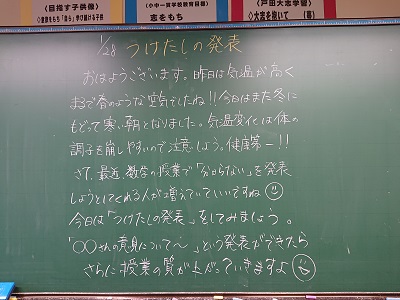 <目指す子供像>
(小中一貫学校教育目標)
<戸田大志学習>
志をもち
1/28 つけたしの発表
おはようございます。昨日は気温が高く
まるで春のような空気でしたね!!今日はまた冬に
もどって寒い朝となりました。気温変化は体の
調子を崩しやすいので注意しよう。健康第一!!
さて、最近、数学の授業で「分からない」を発表
しようとしてくれる人が増えていていいですね
今日は「つけたしの発表」をしてみましょう。
「〇〇さんの意見について〜」という発表ができたら
さらに授業の質が上がっていきますよ